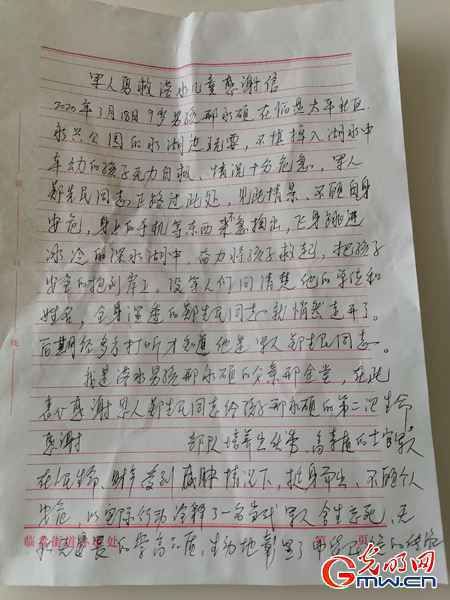 军人勇救落水儿童感谢信
2020年3月18日9岁男孩邢永硕在临邑太平社区
永兴公园的水湖边玩耍，不慎掉入湖水中
年幼的孩子无力自救，情况十分危急，军人
郑先民同志正路过此处，见此情景，不顾自身
安危，身上的手机等东西来不急掏出，飞身跳进
冰冷的深水湖中，奋力将孩子救起，把孩子
安全的抱到岸上，没等人们问清楚他的单位和
姓名，全身湿透的郑先民同志就悄然走开了。
后期经多方打听才知道他是军人郑先民同志。
我是落水男孩邢永硕的父亲邢金堂，在此
衷心感谢军人郑先民同志给孩子邢永硕的第二次生命
感谢 部队培养出优秀、高素质的士官军人
在人民生命、财产受到威胁情况下，挺身而出，不顾个人
安危，以实际行动诠释了一名当代军人舍生忘死，无
私奉献的高品质，生动地彰显了
临 街道 处
光明网
GMW.cn